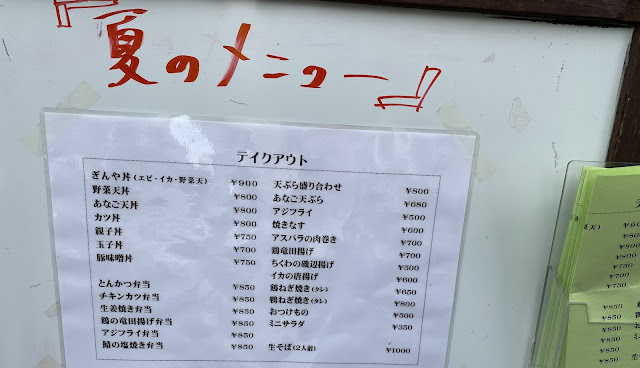 『夏のメニュー』
テイクアウト
ぎんや丼（エビ・イカ・野菜天） ¥900
野菜天丼 ¥800
あなご天丼 ¥800
カツ丼 ¥800
親子丼 ¥750
玉子丼 ¥700
豚味噌丼 ¥750
とんかつ弁当 ¥850
チキンカツ弁当 ¥850
生姜焼き弁当 ¥850
鶏の竜田揚げ弁当 ¥850
アジフライ弁当 ¥850
鯖の塩焼き弁当 ¥850
天ぷら盛り合わせ ¥800
あなご天ぷら ¥680
アジフライ ¥500
焼きなす ¥600
アスパラの肉巻き ¥700
鶏竜田揚げ ¥700
ちくわの磯辺揚げ ¥500
イカの唐揚げ ¥600
鶏ねぎ焼き（タレ） ¥650
鴨ねぎ焼き（タレ） ¥800
おつけもの ¥500
ミニサラダ ¥350
生そば（2人前） ¥1000